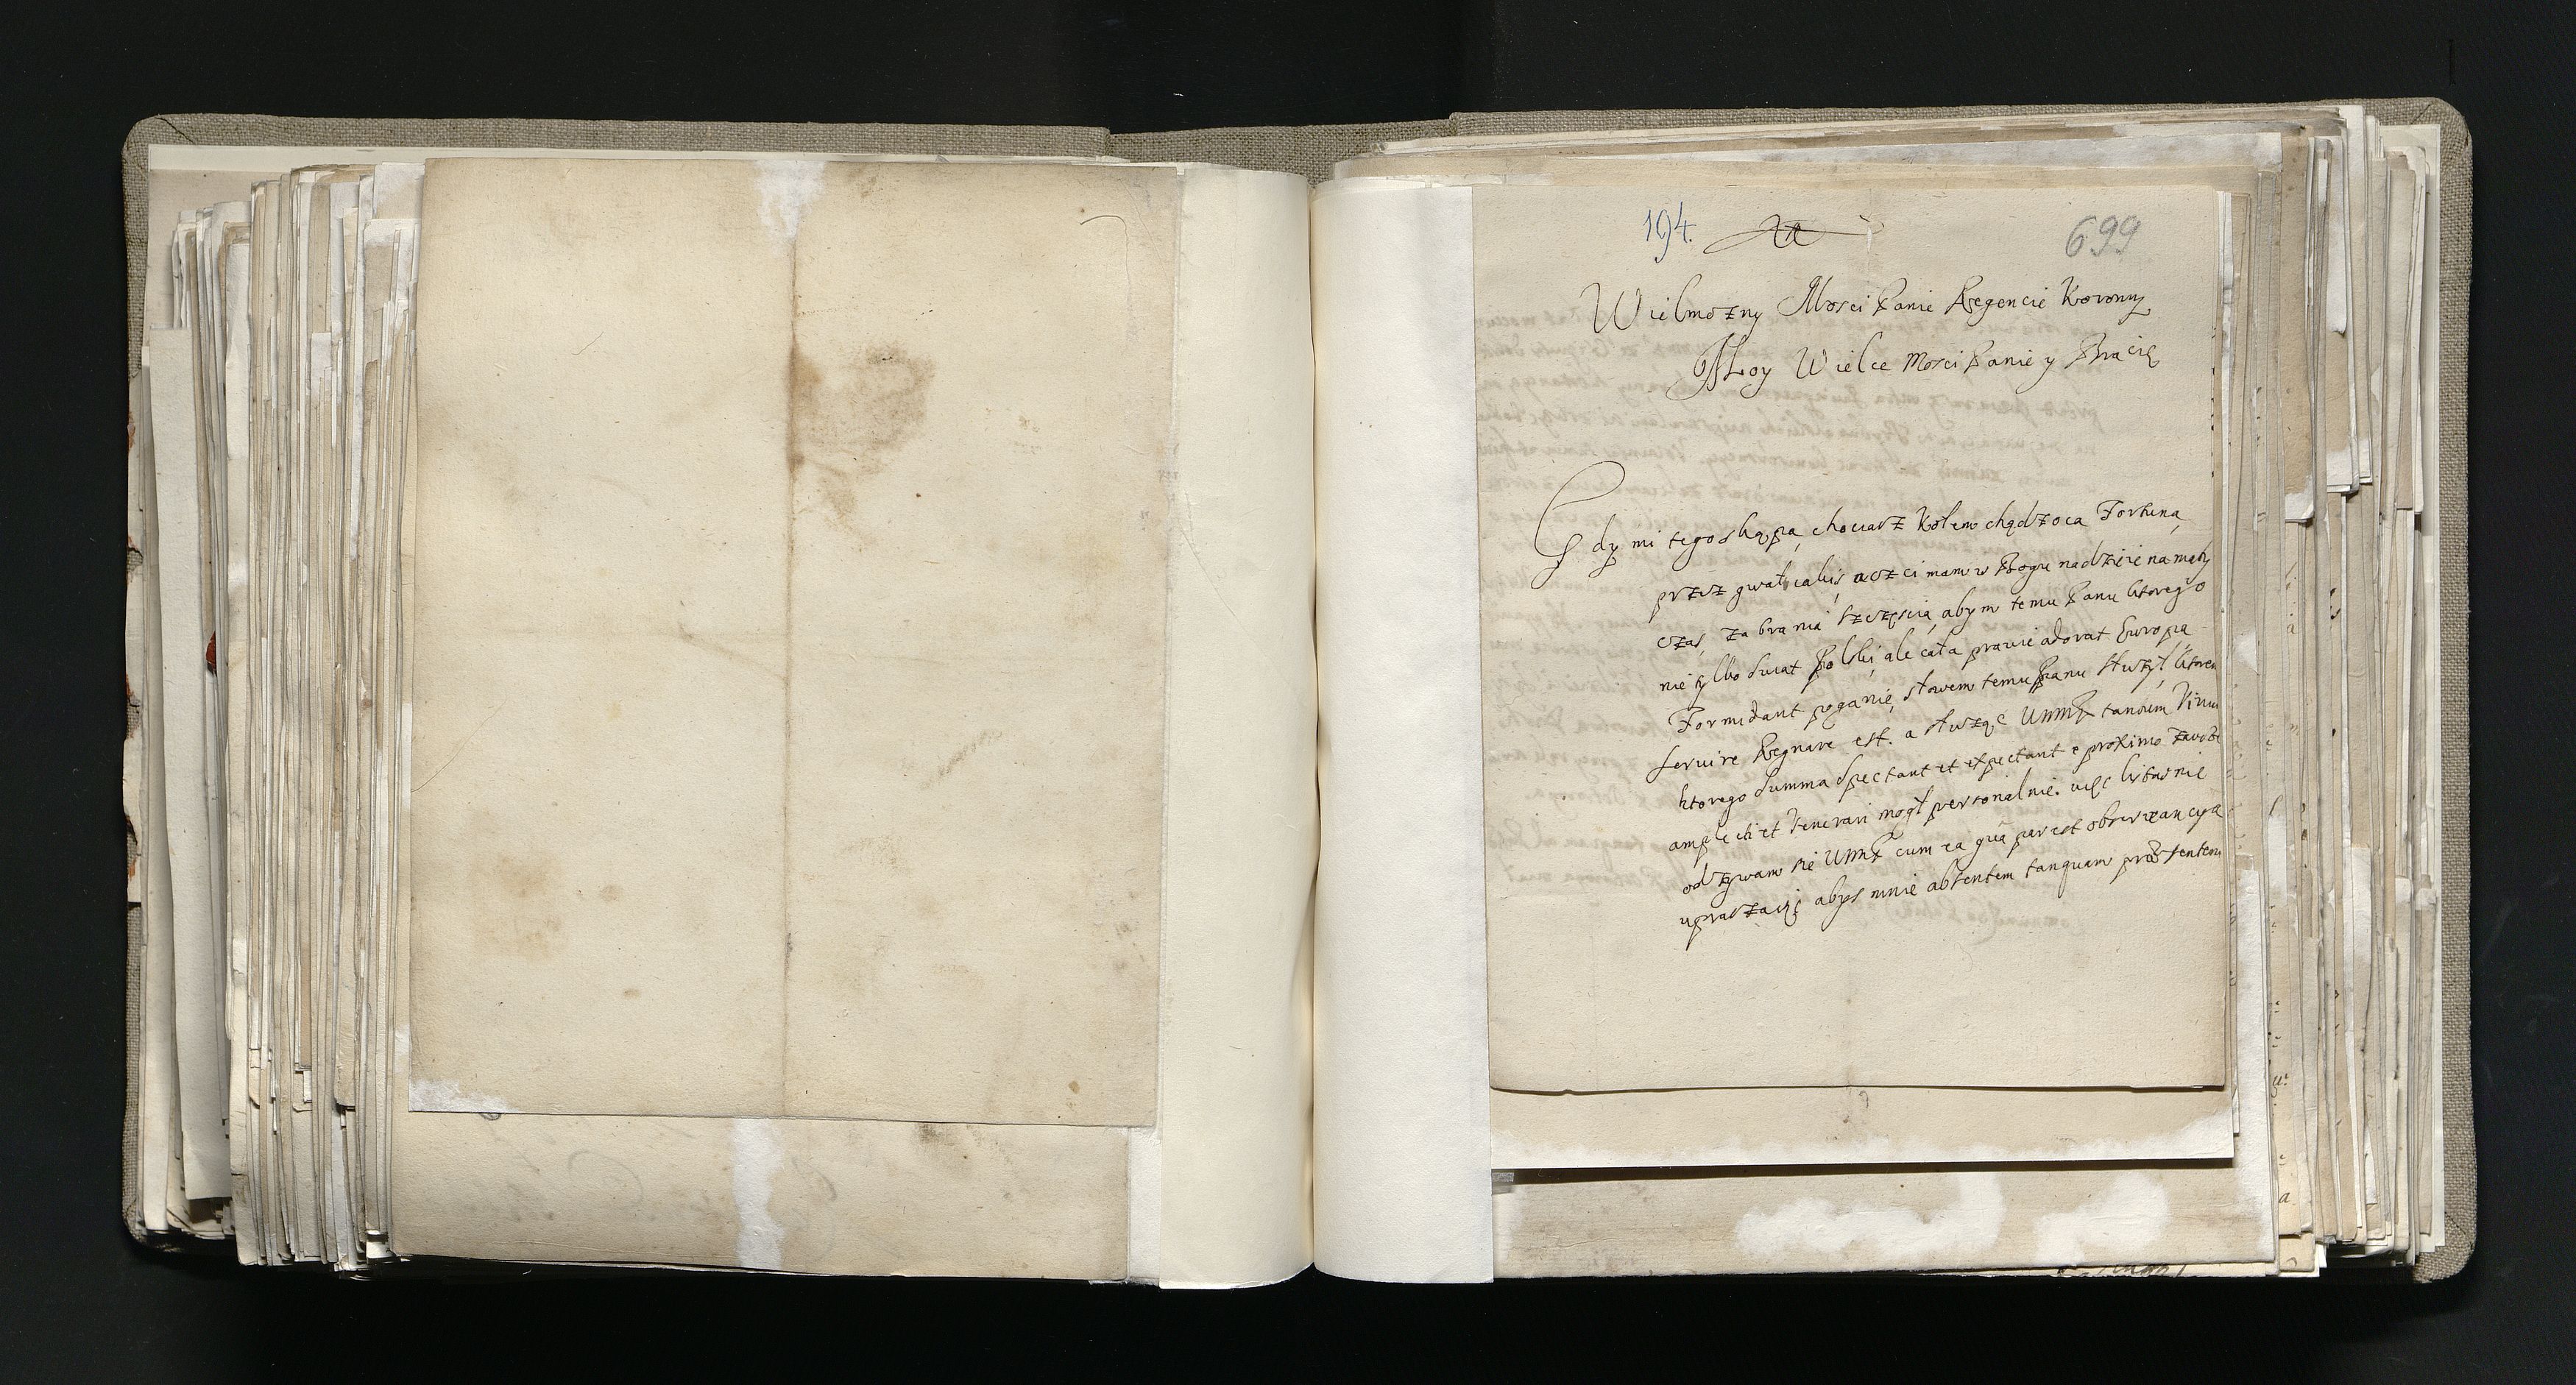 194.
699
Wielmozny Mosci Panie Regencie Koronny
Moy Wielce Mosci Panie y Bracie
Gdy mi tego skąpą chociarz kołem chądzoca Fortuna
przez gwałt iakis, mam w Bogu nadzieie na mały
czas, zabrania szczęscia, abym temu Panu ktorego
nie tylko swiat Polski, ale cała prawie adorat Europa
Formidant poganie, słowem temu Panu słuzył, ktorem
servire Regnare est. a słuząc WMMP tantum Virum
ktorego summa spectant et expectant e proximo
amplecti et Venerari mogł personalnie. więc listownie
odzywam się WMMP cum ea quã par est obserwancyą
upraszaiąc abys mnie absentem tanquam præsentem